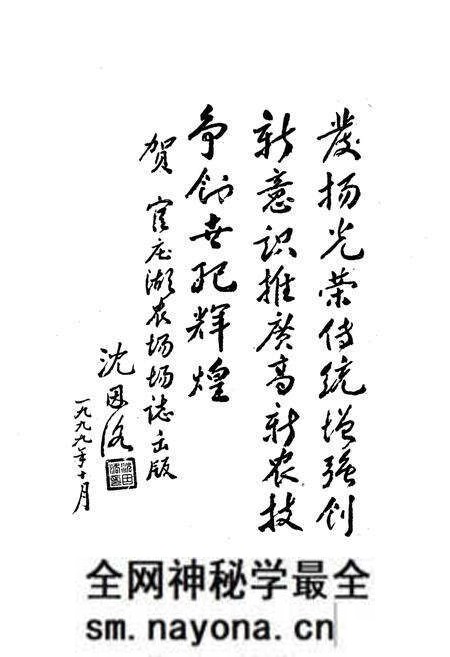 發扬光荣传统增强创
新意识推廣高新农技
争创世纪辉煌
贺官庄湖农场场誌出版
沈因洛
一九九九年十月
全网神秘学最全
sm.nayona.cn